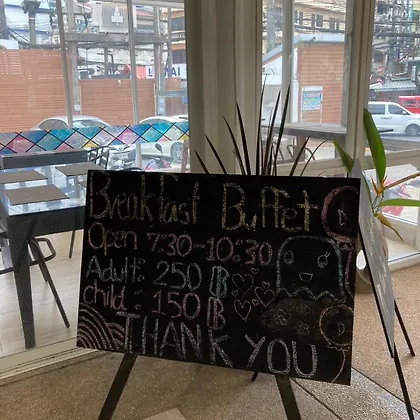 Breakfast Buffet
Open 7:30-10:30
Adult: 250 ฿
child: 150 ฿
THANK YOU